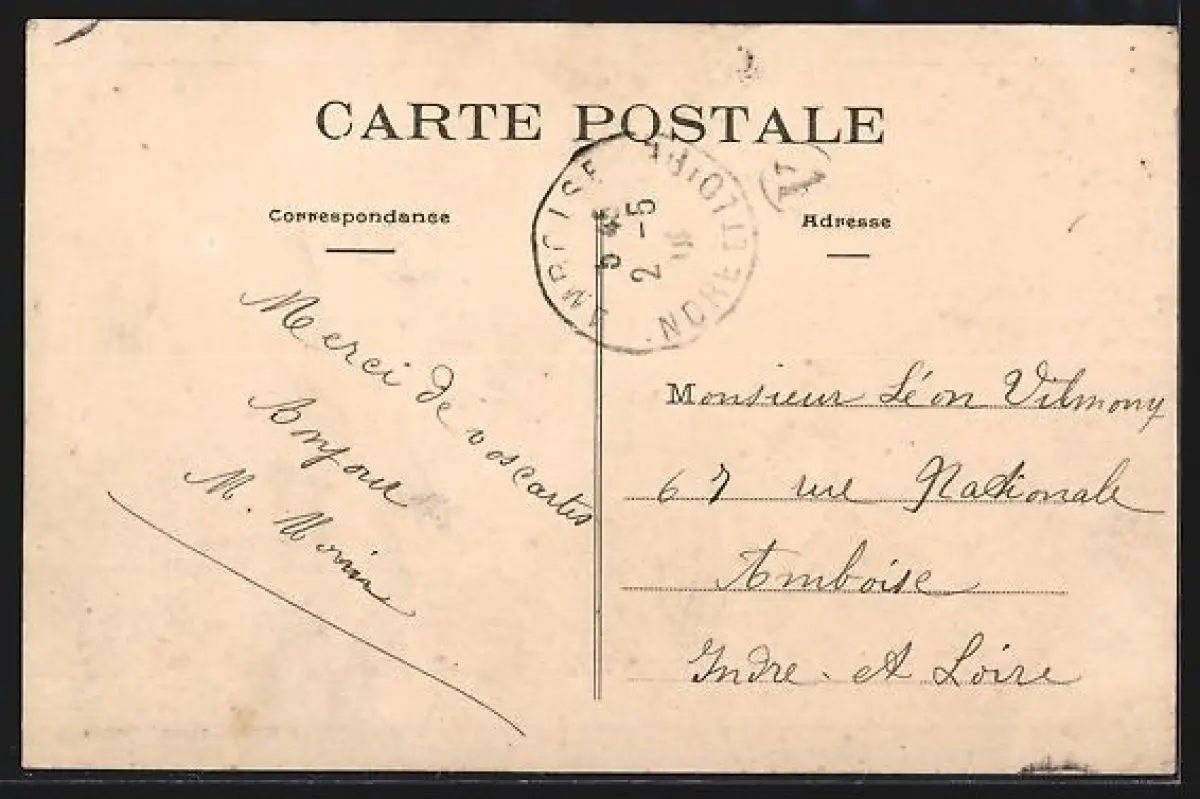 CARTE POSTALE
Correspondance
Adresse
AMBOISE
INDRE ET LOIRE
5
2 -5
A
Merci de vos cartes
Bonjour
M. Morin
Monsieur Léon Vilmony
67 rue Nationale
Amboise
Indre. et Loire